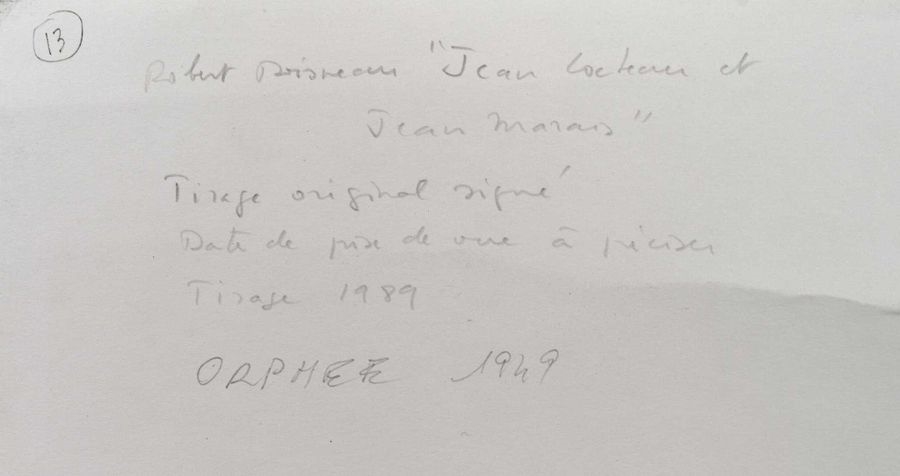 13
Robert Doisneau "Jean Cocteau et
Jean Marais"
Tirage original signé
Date de prise de vue à préciser
Tirage 1989
ORPHEE 1949